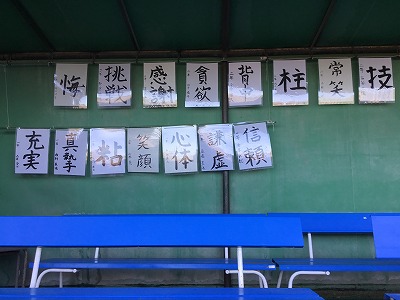 悔
挑戦
感謝
貪欲
柱
常笑
技
充実
真摯
粘
笑顔
心体
謙虚
信頼